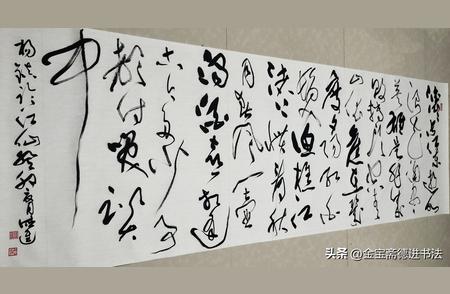 滚滚长江东逝
水浪花淘尽
英雄是非成
败转头空青
山依旧在几
度夕阳红白
发渔樵江
渚上惯看秋
月春风一壶
浊酒喜相逢
古今多少事
都付笑谈
中
杨慎词临江仙
头条 @金宝斋德进书法